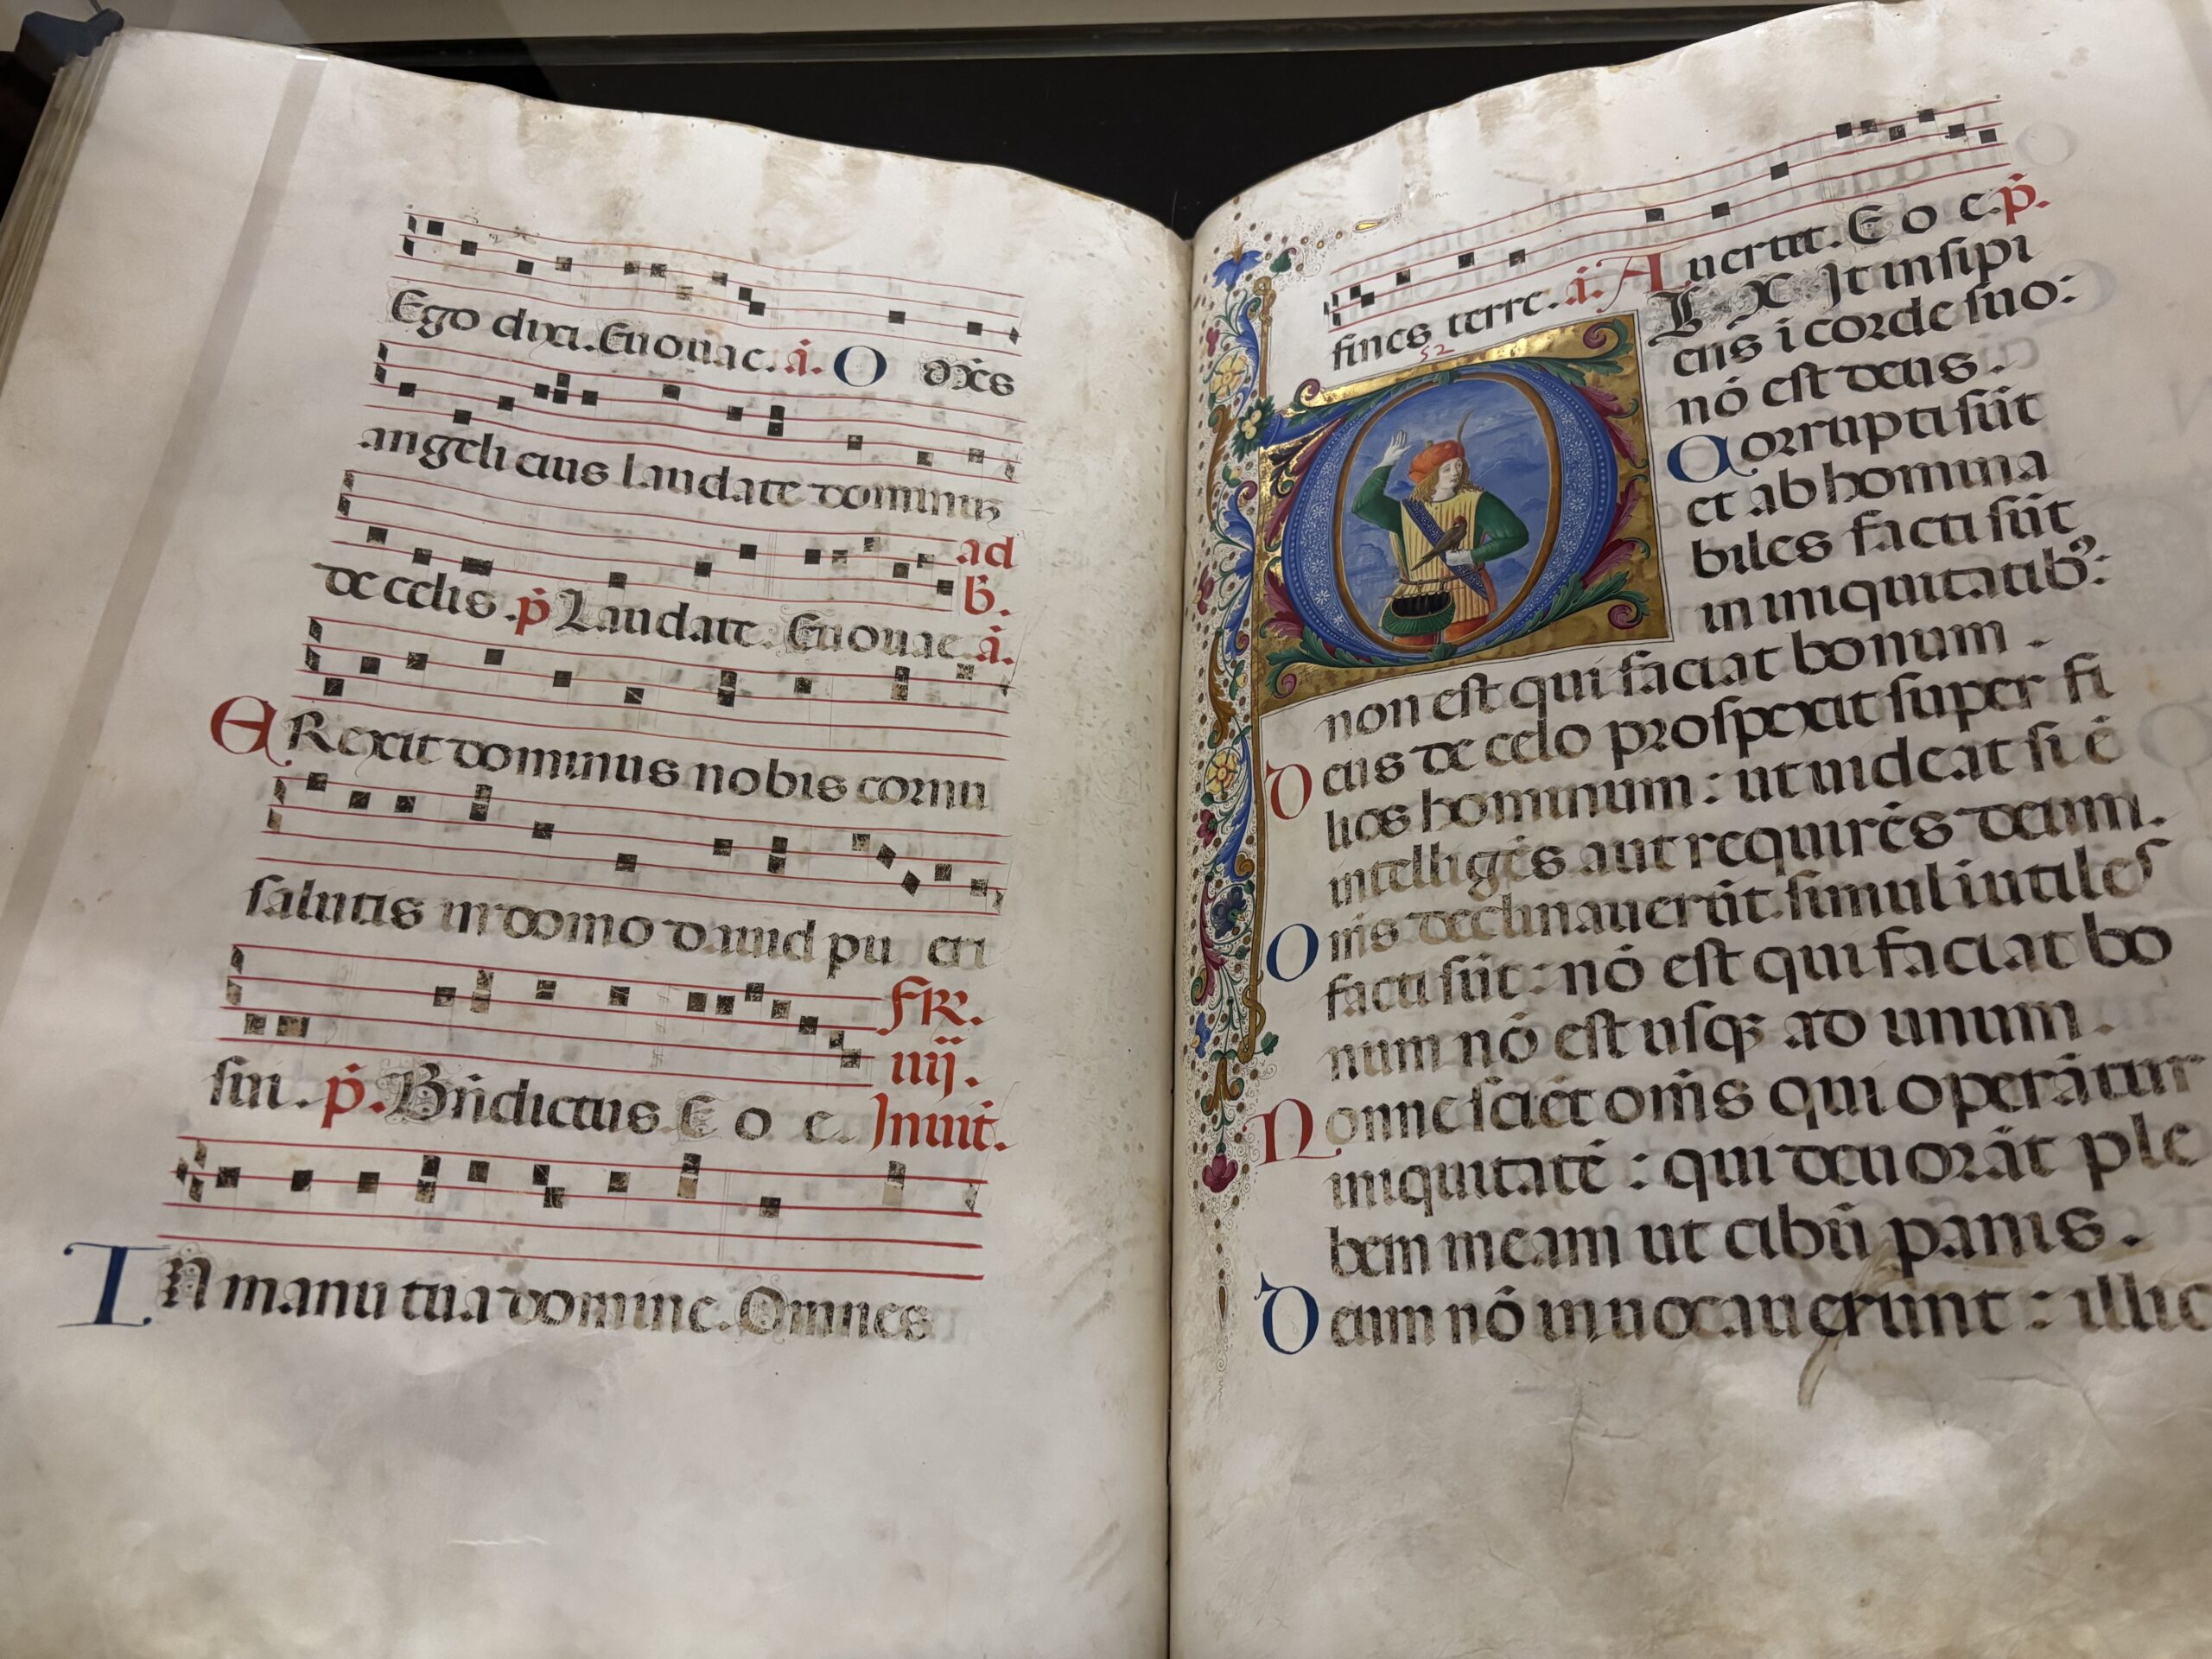 Ego dixi. Euouae. i. O om̄s
angeli eius laudate dominuʒ
ad
de celis. p̄ Laudate. Euouae. a.
b̄.
ERexit dominus nobis cornu
salutis in domo dauid pu eri
FR.
sui. p̄. Bn̄dictus E o e. Inuit.
iiij.
IN manu tua domine. Omnes
fines terre. i. Auertit. E o e. p̄.
52
DIXIt insipi
ens i corde suo:
nō est deus.
Corrupti sūt
et abhomina
biles facti sūt
in iniquitatibꝰ:
non est qui faciat bonum.
Deus de celo prospexit super fi
lios hominum: ut uideat si ē
intelligēs aut requirēs deum.
Om̄s declinauerūt. simul iutiles
facti sūt: nō est qui faciat bo
num nō est usqꝫ ad unum.
Nonne sciēt om̄s qui operātur
iniquitatē: qui deuorāt ple
bem meam ut cibū panis.
Deum nō inuocauerunt: illic